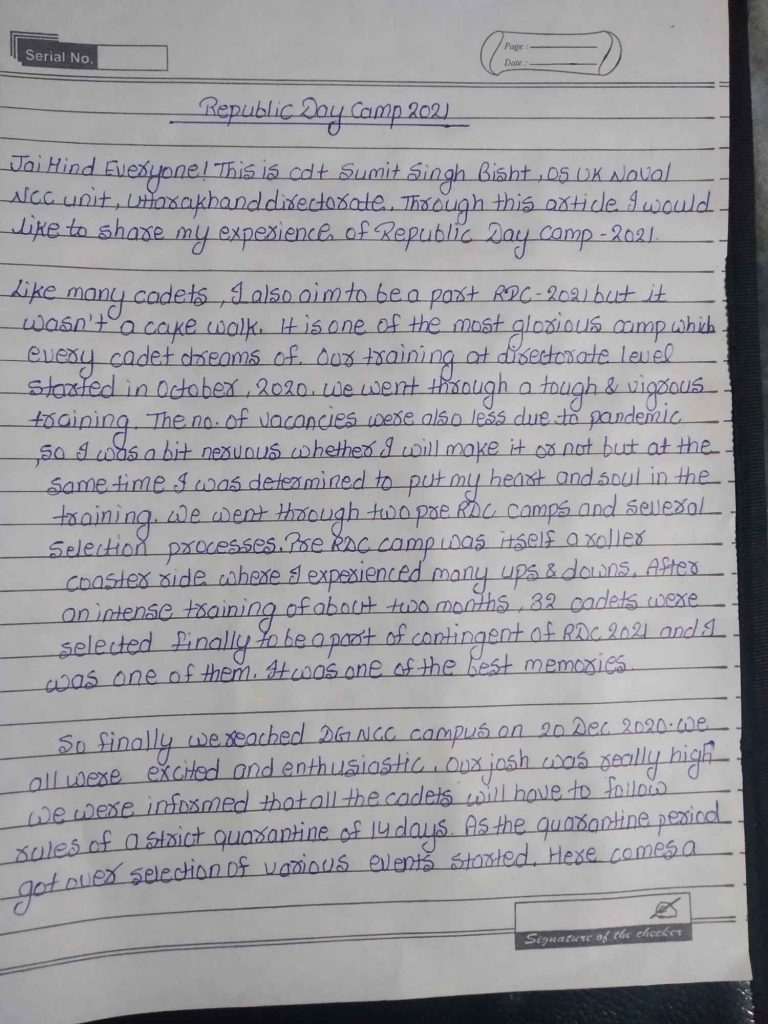 Serial No.
Page :
Date :
Republic Day Camp 2021
Jai Hind Everyone! This is cdt Sumit Singh Bisht, 05 UK Naval
NCC unit, Uttarakhand directorate. Through this article I would
like to share my experience of Republic Day Camp - 2021.
Like many cadets, I also aim to be a part RDC-2021 but it
wasn't a cake walk. It is one of the most glorious camp which
every cadet dreams of. Our training at directorate level
started in October, 2020. We went through a tough & vigrous
training. The no. of vacancies were also less due to pandemic
,so I was a bit nervous whether I will make it or not but at the
same time I was determined to put my heart and soul in the
training. We went through two pre RDC camps and several
selection processes. Pre RDC camp was itself a roller
coaster ride where I experienced many ups & downs. After
an intense training of about two months, 32 cadets were
selected finally to be a part of contingent of RDC 2021 and I
was one of them. It was one of the best memories.
So finally we reached DG NCC campus on 20 Dec 2020. We
all were excited and enthusiastic. Our josh was really high
we were informed that all the cadets will have to follow
rules of a strict quarantine of 14 days. As the quarantine period
got over selection of various events started. Here comes a
Signature of the checker